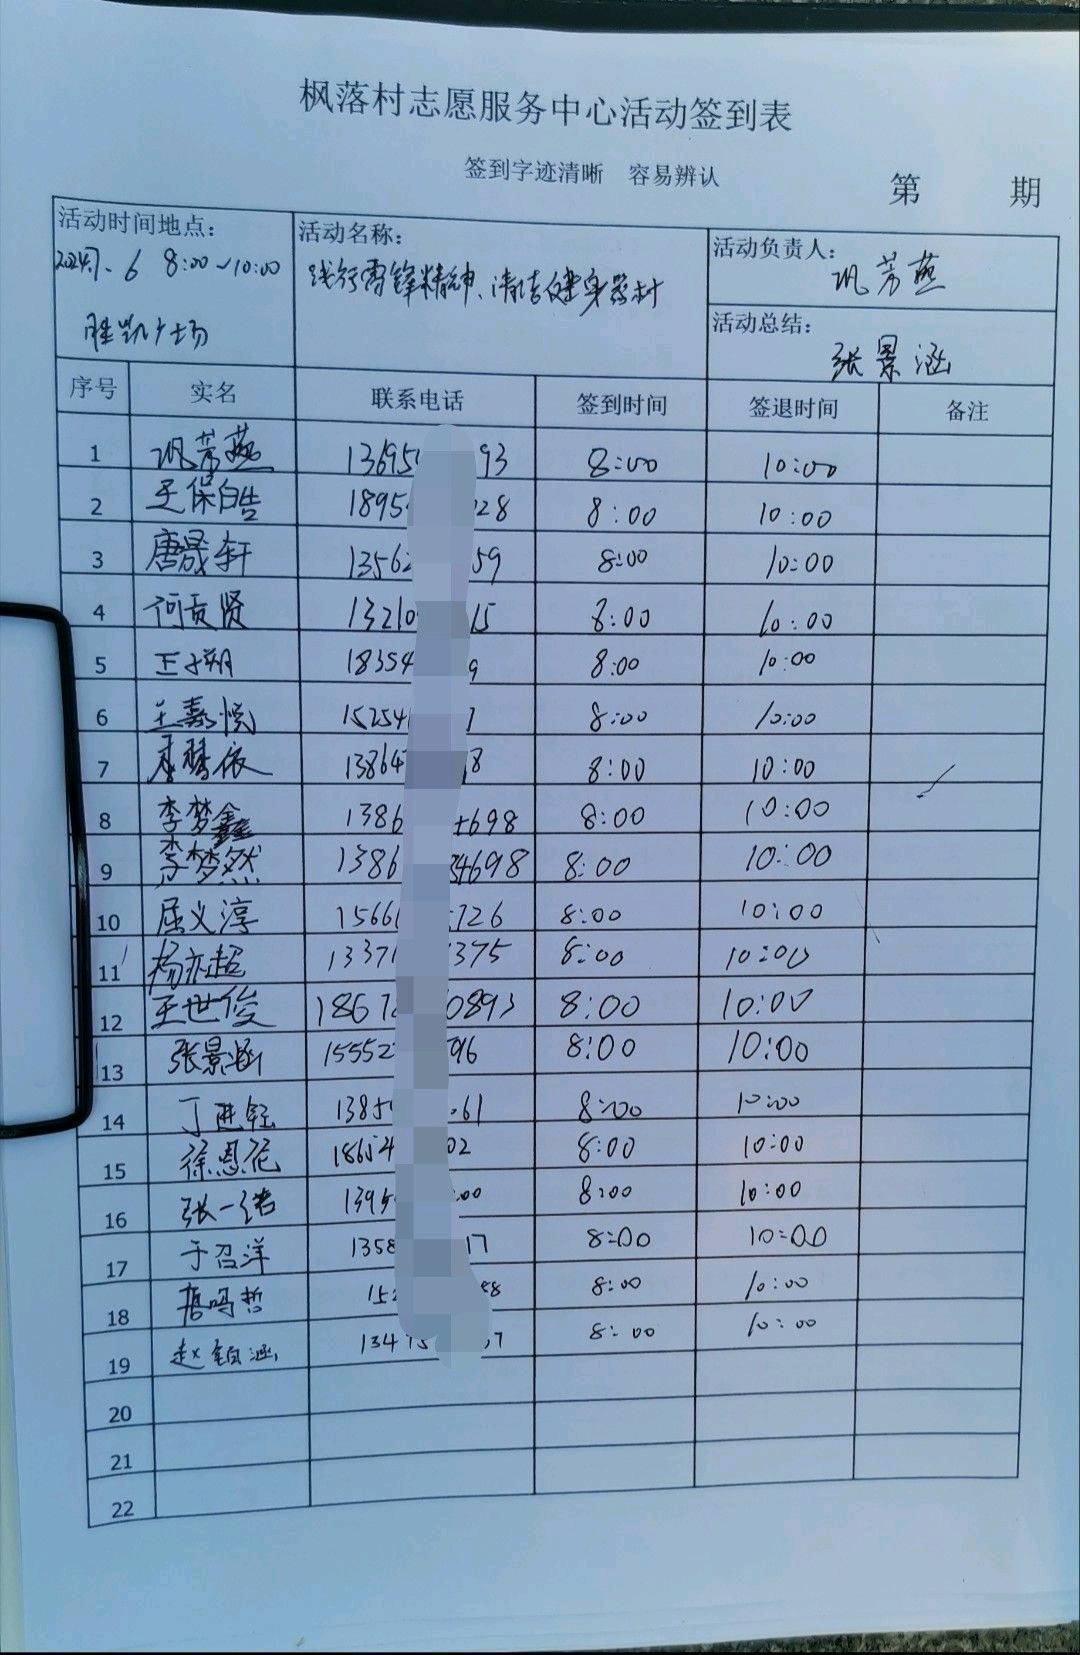 枫落村志愿服务中心活动签到表
签到字迹清晰 容易辨认
第 期
活动时间地点:
2024.7.6 8:00~10:00
胜凯广场
活动名称:
践行雷锋精神、清洁健身器材
活动负责人:
巩芳燕
活动总结:
张景涵
序号 实名 联系电话 签到时间 签退时间 备注
1 巩芳燕 13695 93 8:00 10:00
2 王保皓 1895 028 8:00 10:00
3 唐晟轩 1356 59 8:00 10:00
4 何贡贤 13210 15 8:00 10:00
5 王子朔 18354 9 8:00 10:00
6 王嘉悦 15254 7 8:00 10:00
7 李慧依 13864 8 8:00 10:00
8 李梦鑫 1386 4698 8:00 10:00
9 李梦然 1386 34698 8:00 10:00
10 屈义淳 1566 726 8:00 10:00
11 杨亦超 1337 375 8:00 10:00
12 王世俊 1867 0893 8:00 10:00
13 张景涵 15552 96 8:00 10:00
14 丁进钰 1385 61 8:00 10:00
15 徐恩花 18654 02 8:00 10:00
16 张一诺 1395 00 8:00 10:00
17 于召洋 1358 17 8:00 10:00
18 鸣哲 152 8 8:00 10:00
19 赵钰涵 13475 7 8:00 10:00
20
21
22